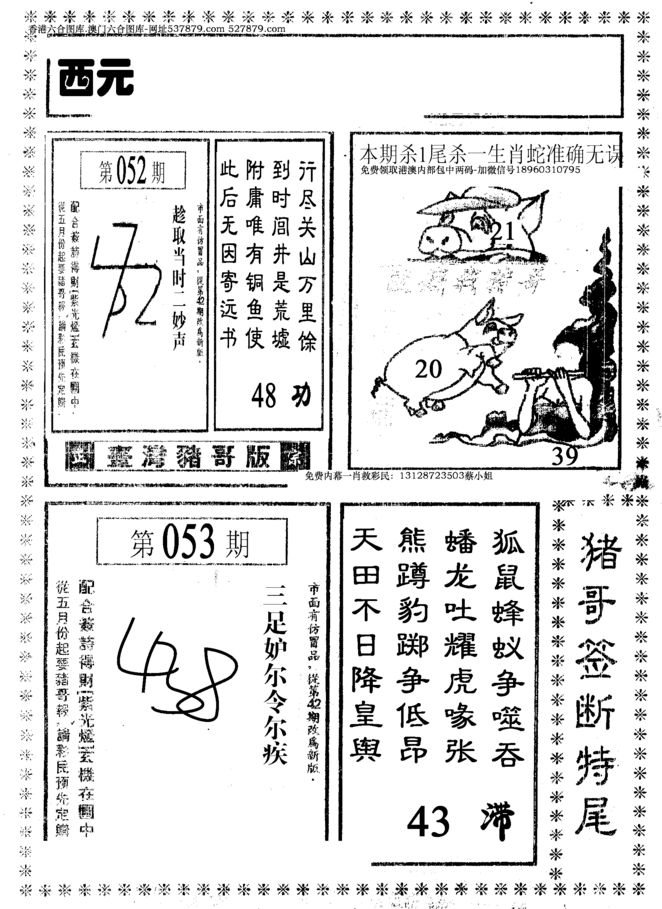 香港六合图库.澳门六合图库-网址537879.com 527879.com
西元
第052期
市面有仿冒品，從第42期改爲新版．
趁取当时二妙声
配合簽詩得財(紫光爐)玄機在圖中
從五月份起要豬哥報，請彩民預先定購
行尽关山万里馀
到时闾井是荒墟
附庸唯有铜鱼使
此后无因寄远书
48 功
臺灣豬哥版
本期杀1尾杀一生肖蛇准确无误
免费领取港澳内部包中两码-加微信号18960310795
21
20
39
免费内幕一肖救彩民：13128723503蔡小姐
第053期
市面有仿冒品，從第42期改爲新版．
三足妒尔令尔疾
438
配合簽詩得財(紫光爐)玄機在圖中
從五月份起要豬哥報，請彩民預先定購
狐鼠蜂蚁争噬吞
蟠龙吐耀虎喙张
熊蹲豹踯争低昂
天田不日降皇舆
43 滞
猪哥签断特尾